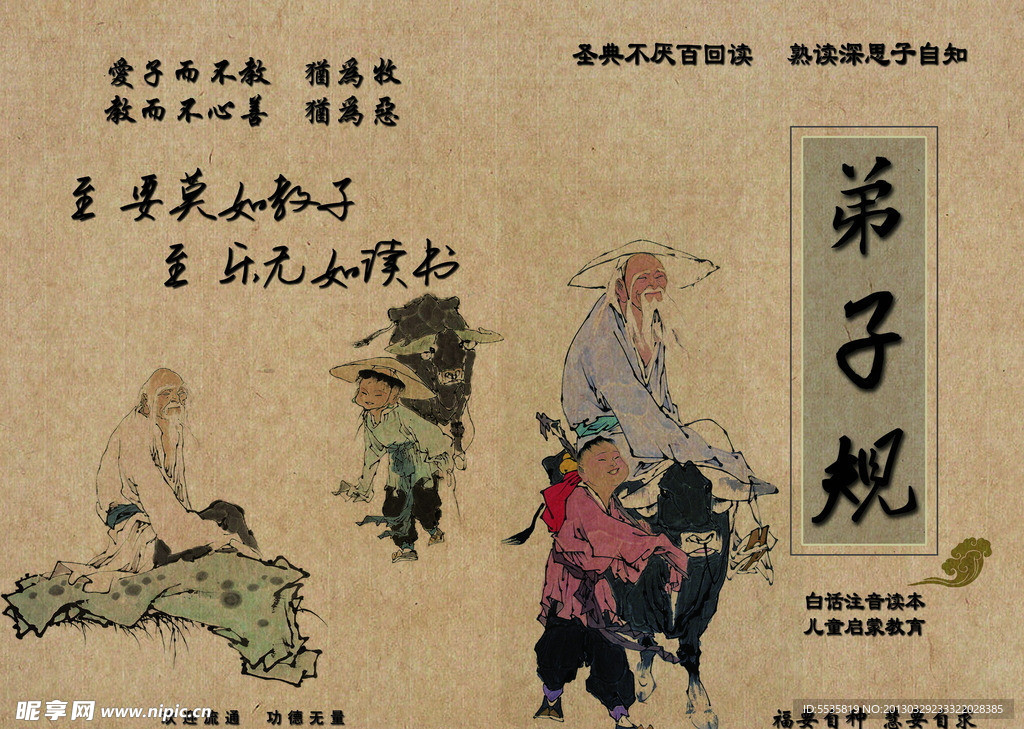 愛子而不教 猶為牧
教而不心善 猶為惡
至要莫如教子
至乐无如读书
圣典不厌百回读 熟读深思子自知
弟子规
白话注音读本
儿童启蒙教育
流通 功德无量
福要自种 慧要自求
昵享网 www.nipic.cn
ID:5535819 NO:20130329233322028385